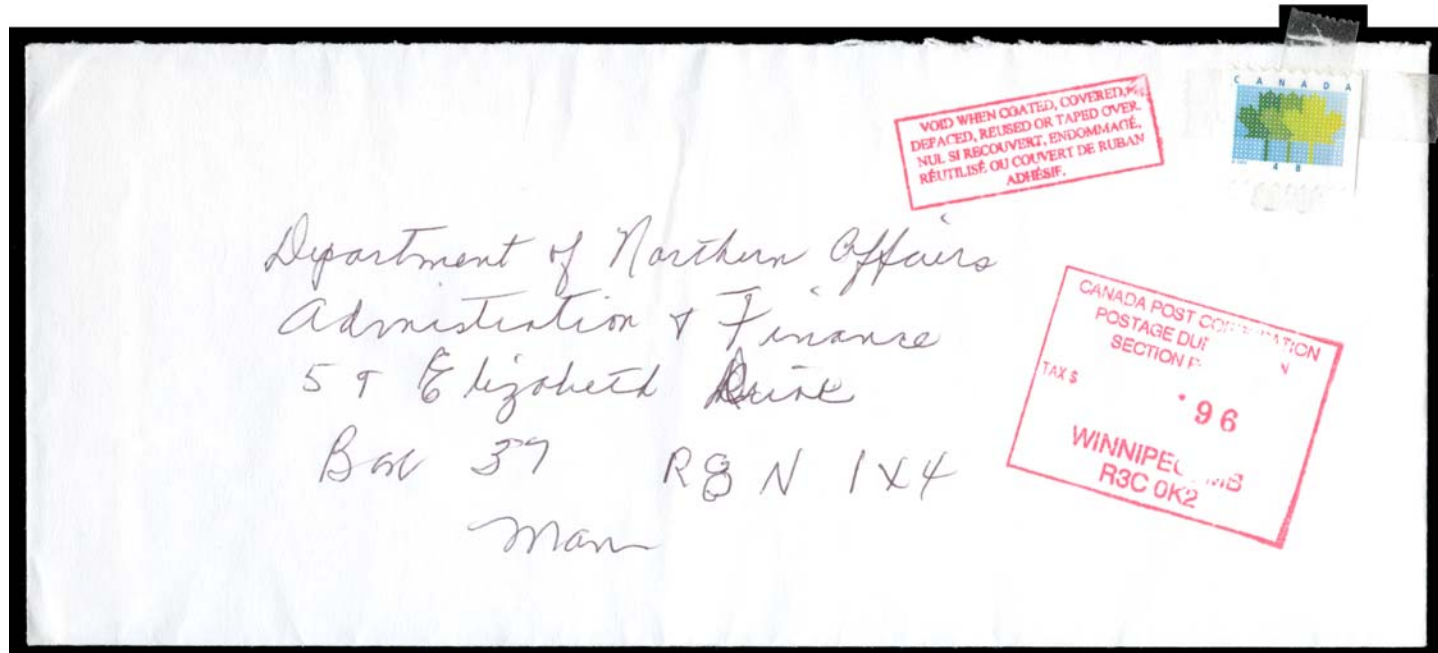 CANADA
48
VOID WHEN COATED, COVERED,
DEFACED, REUSED OR TAPED OVER.
NUL SI RECOUVERT, ENDOMMAGÉ,
RÉUTILISÉ OU COUVERT DE RUBAN
ADHÉSIF.
Department of Northern Affairs
Admistration & Finance
59 Elizabeth Drive
Box 37 R8N 1X4
Man
CANADA POST
POSTAGE DUE
SECTION
TAX $
96
WINNIPEG MB
R3C 0K2